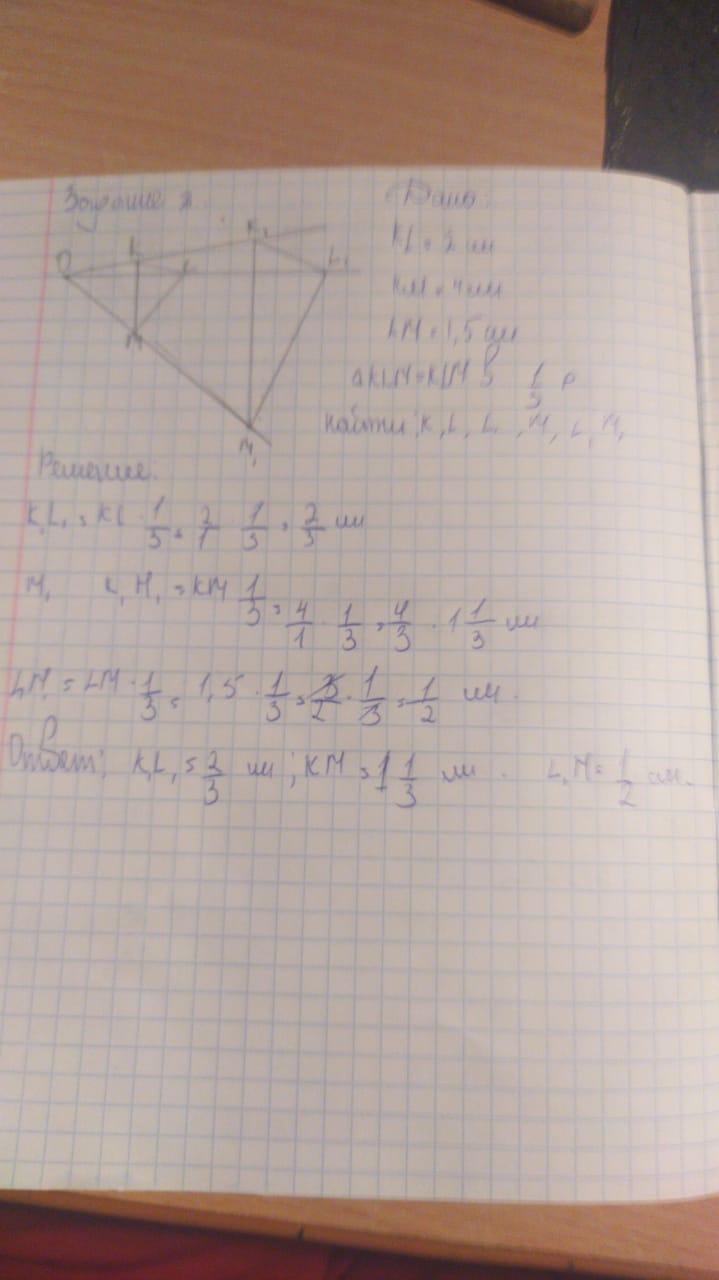 Задание 2.
O K L K₁ L₁ M M₁
Дано:
KL = 2 см
KM = 4 см
LM = 1,5 см
в 1/3 р
Найти: K₁L₁, L₁M₁
Решение:
K₁L₁ = KL · 1/3 = 2/1 · 1/3 = 2/3 см
M₁ K₁M₁ = KM 1/3 = 4/1 · 1/3 = 4/3 · 1 1/3 см
LM₁ = LM · 1/3 = 1,5 · 1/3 = 3/2 · 1/3 = 1/2 см.
Ответ; K₁L₁ = 2/3 см; KM = 1 1/3 см . L₁M = 1/2 см.